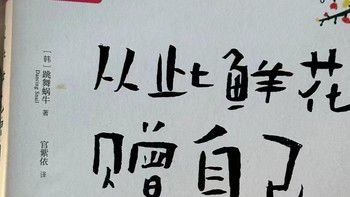 从此鲜花
赠自己
［韩］跳舞蜗牛 著
Dancing Snail
官紫依 译